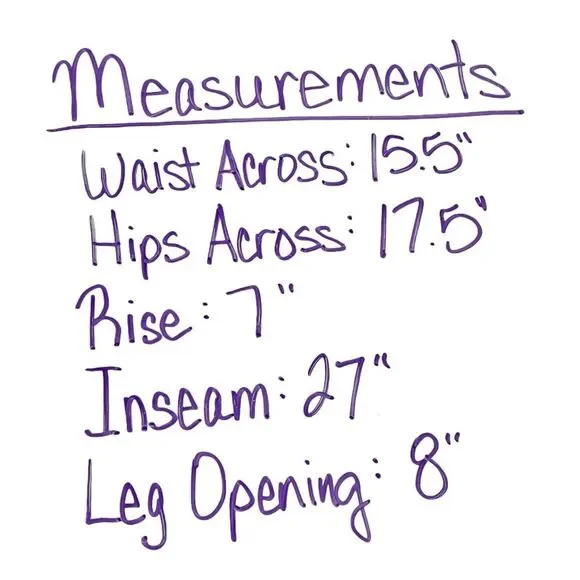 Measurements
Waist Across: 15.5"
Hips Across: 17.5"
Rise: 7"
Inseam: 27"
Leg Opening: 8"